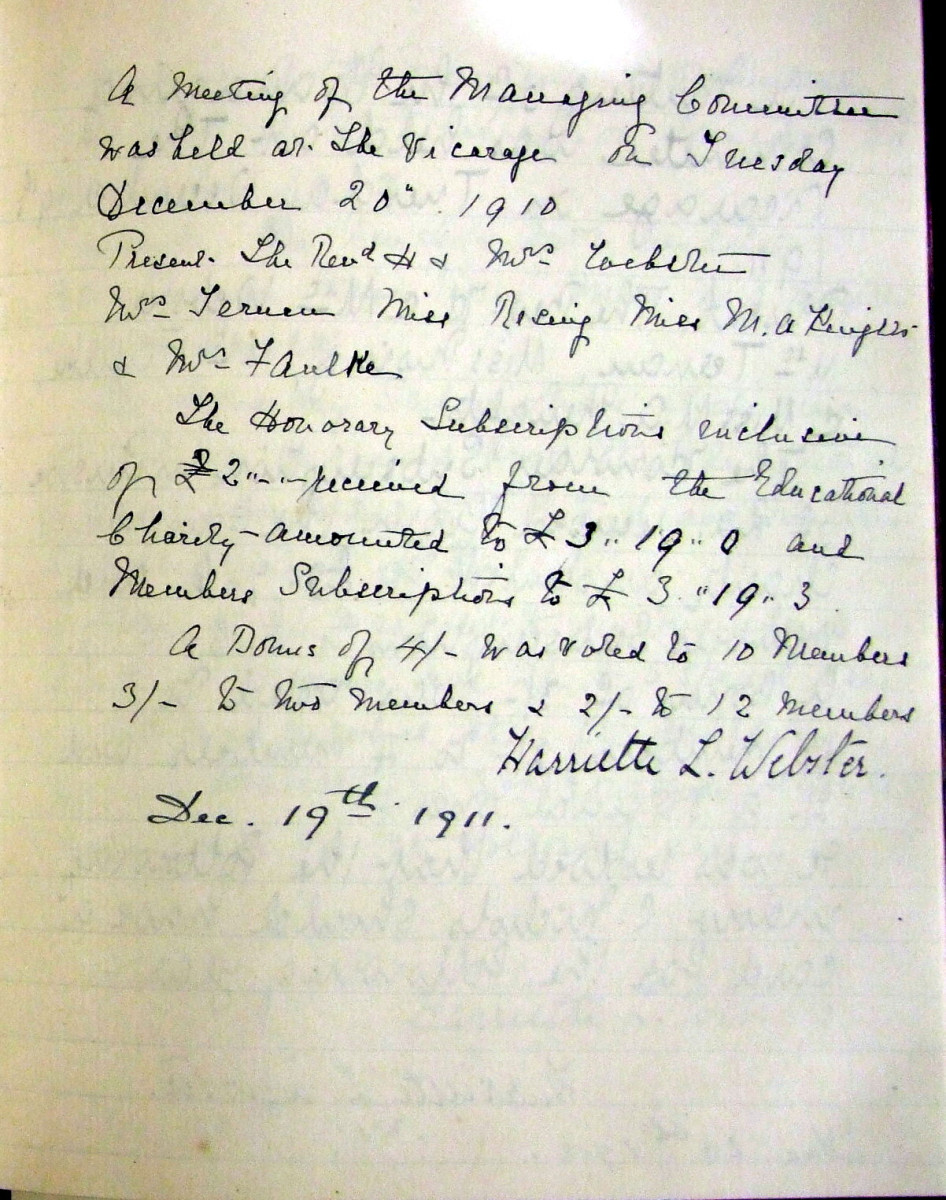 A Meeting of the Managing Committee
was held at The Vicarage on Tuesday
December 20" 1910
Present. The Revd H & Mrs Webster
Mrs Miss Rising Miss M. A Knights
& Mrs Faulke
The Honorary Subscriptions inclusive
of £2"-"- received from the Educational
Charity - amounted to £3"19"0 and
Members Subscriptions to £3"19"3
A Bonus of 4/- was voted to 10 Members
3/- to two members & 2/- to 12 members
Harriette L. Webster.
Dec. 19th 1911.